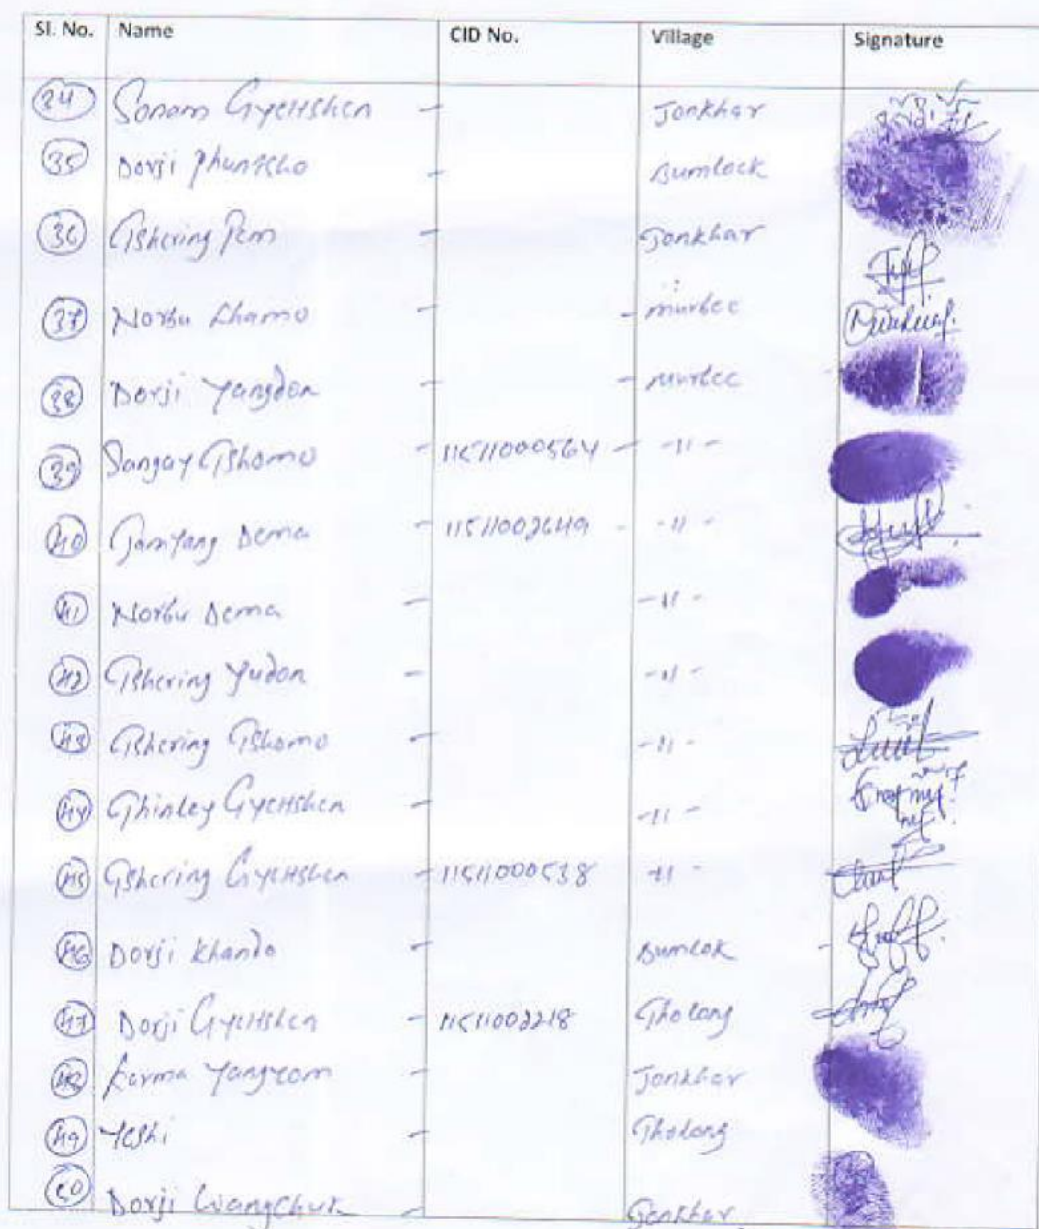 Sl. No. Name CID No. Village Signature
34 Sonam Gyeltshen - Jonkhar
35 Dorji Phuntsho - Bumlock
36 Tshering Pem - Jonkhar
37 Norbu Lhamo - murbee
38 Dorji Yangdon - - murbee
39 Sangay Tshomo - 11511000564 - -11-
40 Jamyang Dema - 11511002649 - -11-
41 Norbu Dema - -11-
42 Tshering Yudon - -11-
43 Tshering Tshomo - -11-
44 Thinley Gyeltshen - -11-
45 Tshering Gyeltshen - 11511000538 -11-
46 Dorji Khando - Bumlok
47 Dorji Gyeltshen - 11511002218 Tholong
48 Karma Yangzom - Jonkhar
49 Yeshi - Tholong
50 Dorji Wangchuk - Jonkhar